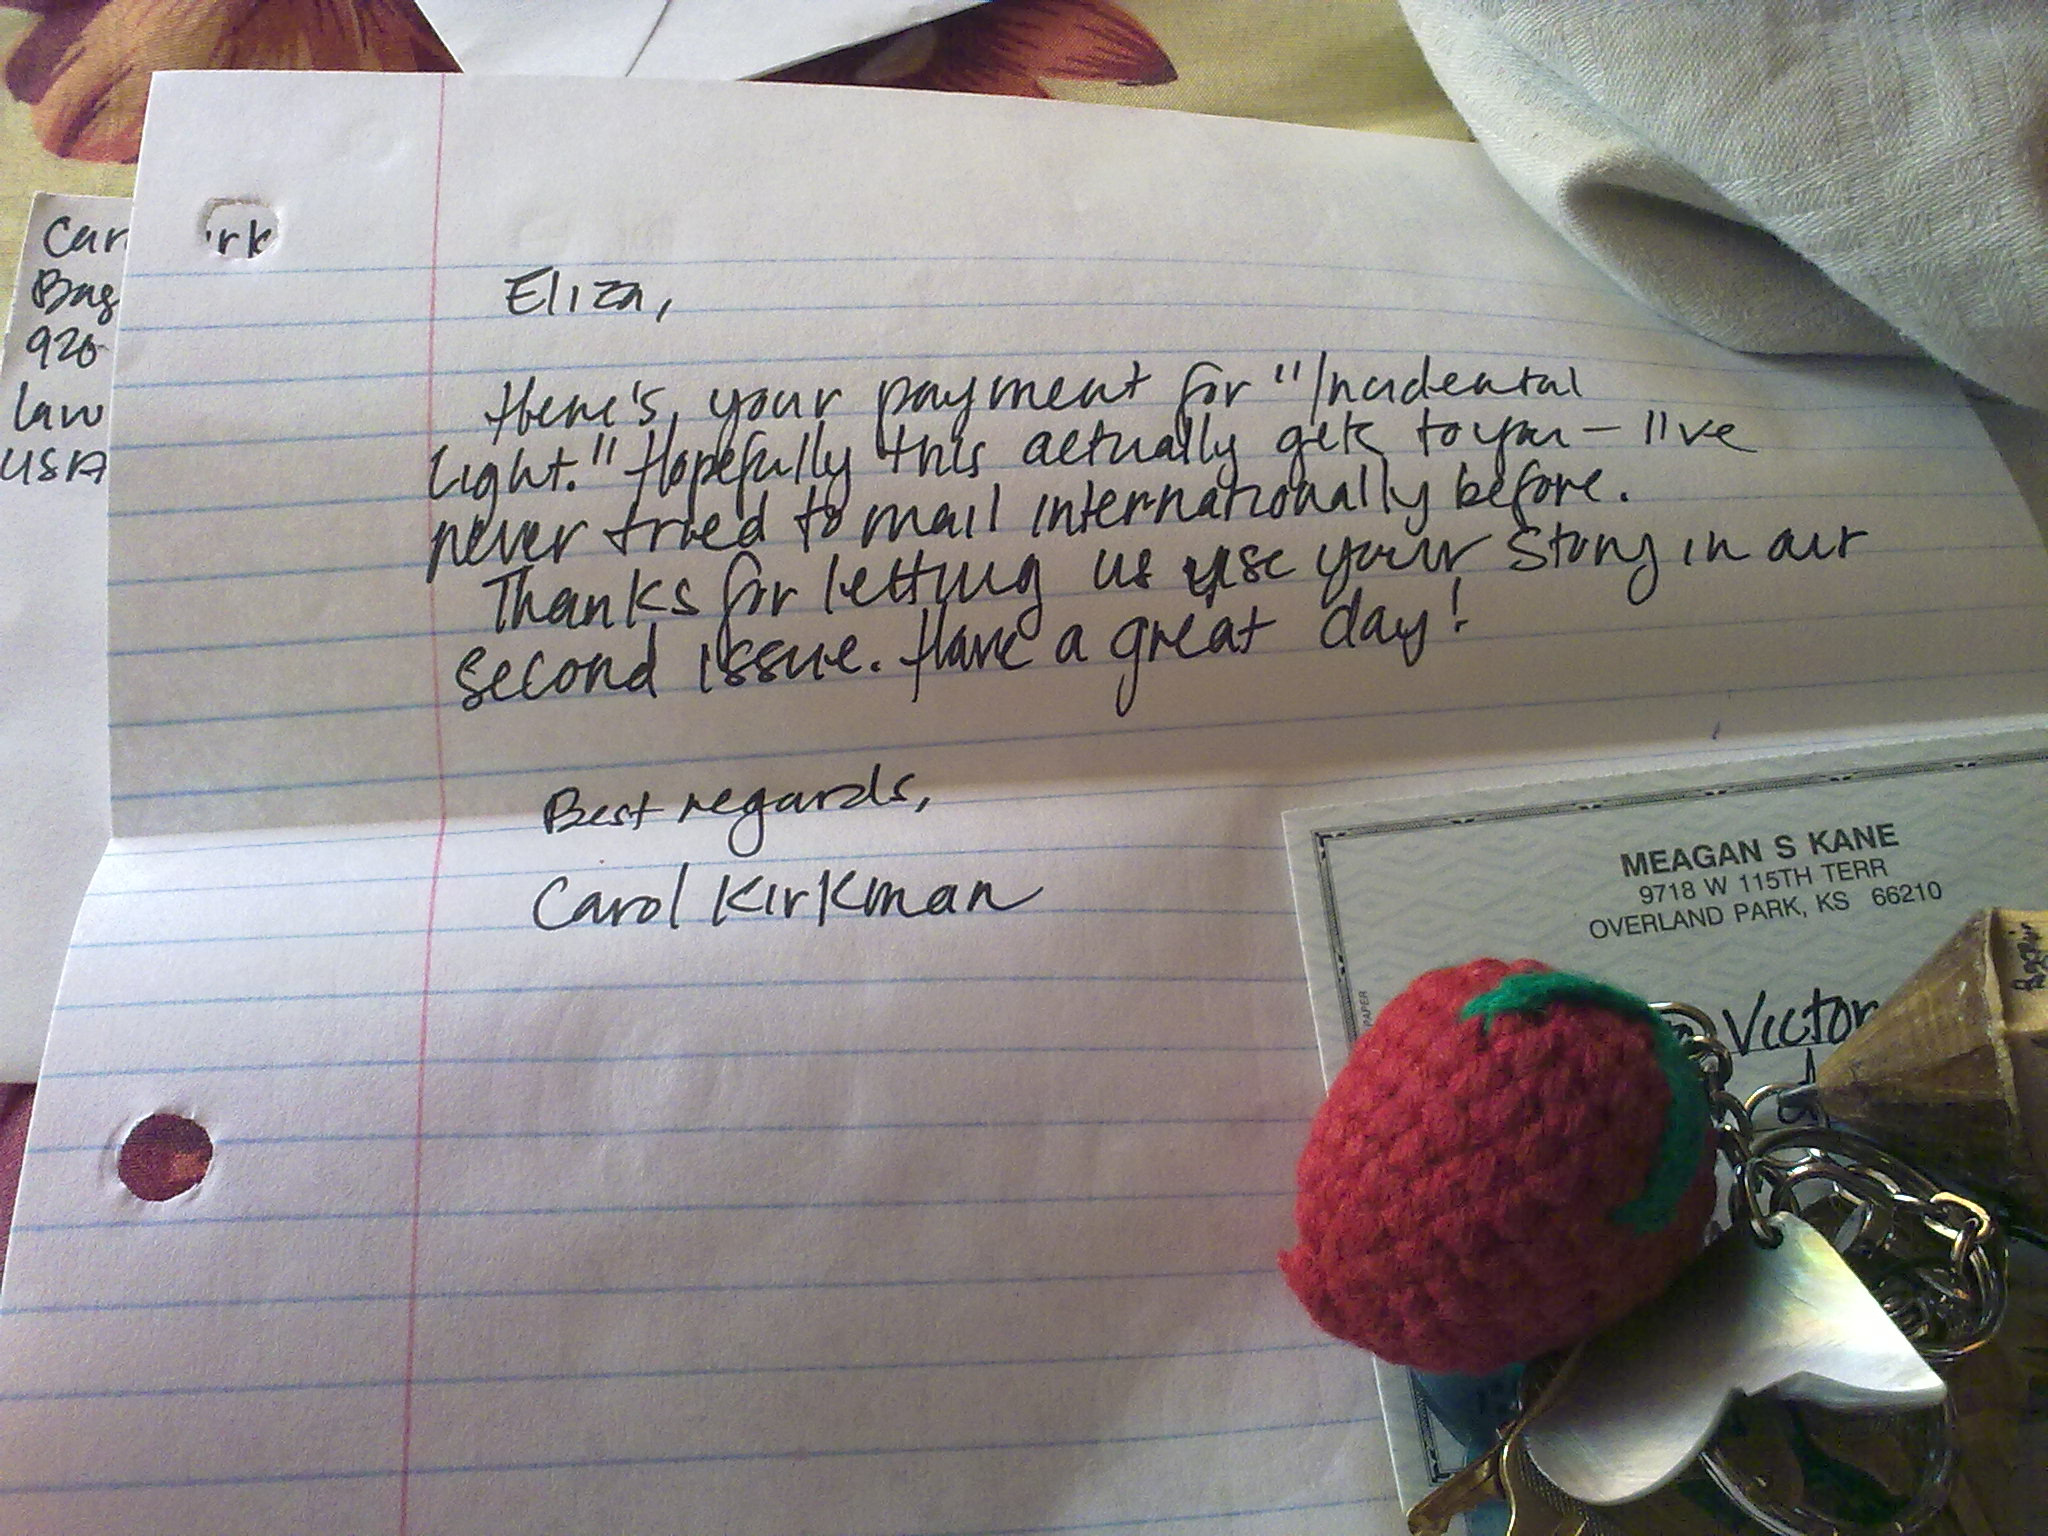 Car
Bag
920
law
USA
irk
Eliza,
Here's your payment for "Incidental
Light." Hopefully this actually gets to you – I've
never tried to mail internationally before.
Thanks for letting us use your story in our
second issue. Have a great day!
Best regards,
Carol Kirkman
MEAGAN S KANE
9718 W 115TH TERR
OVERLAND PARK, KS 66210
PAPER
Victor